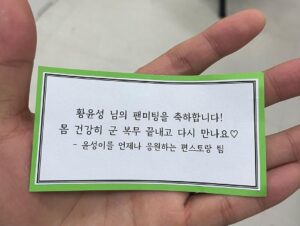 황윤성 님의 팬미팅을 축하합니다!
몸 건강히 군 복무 끝내고 다시 만나요♡
- 윤성이를 언제나 응원하는 편스토랑 팀